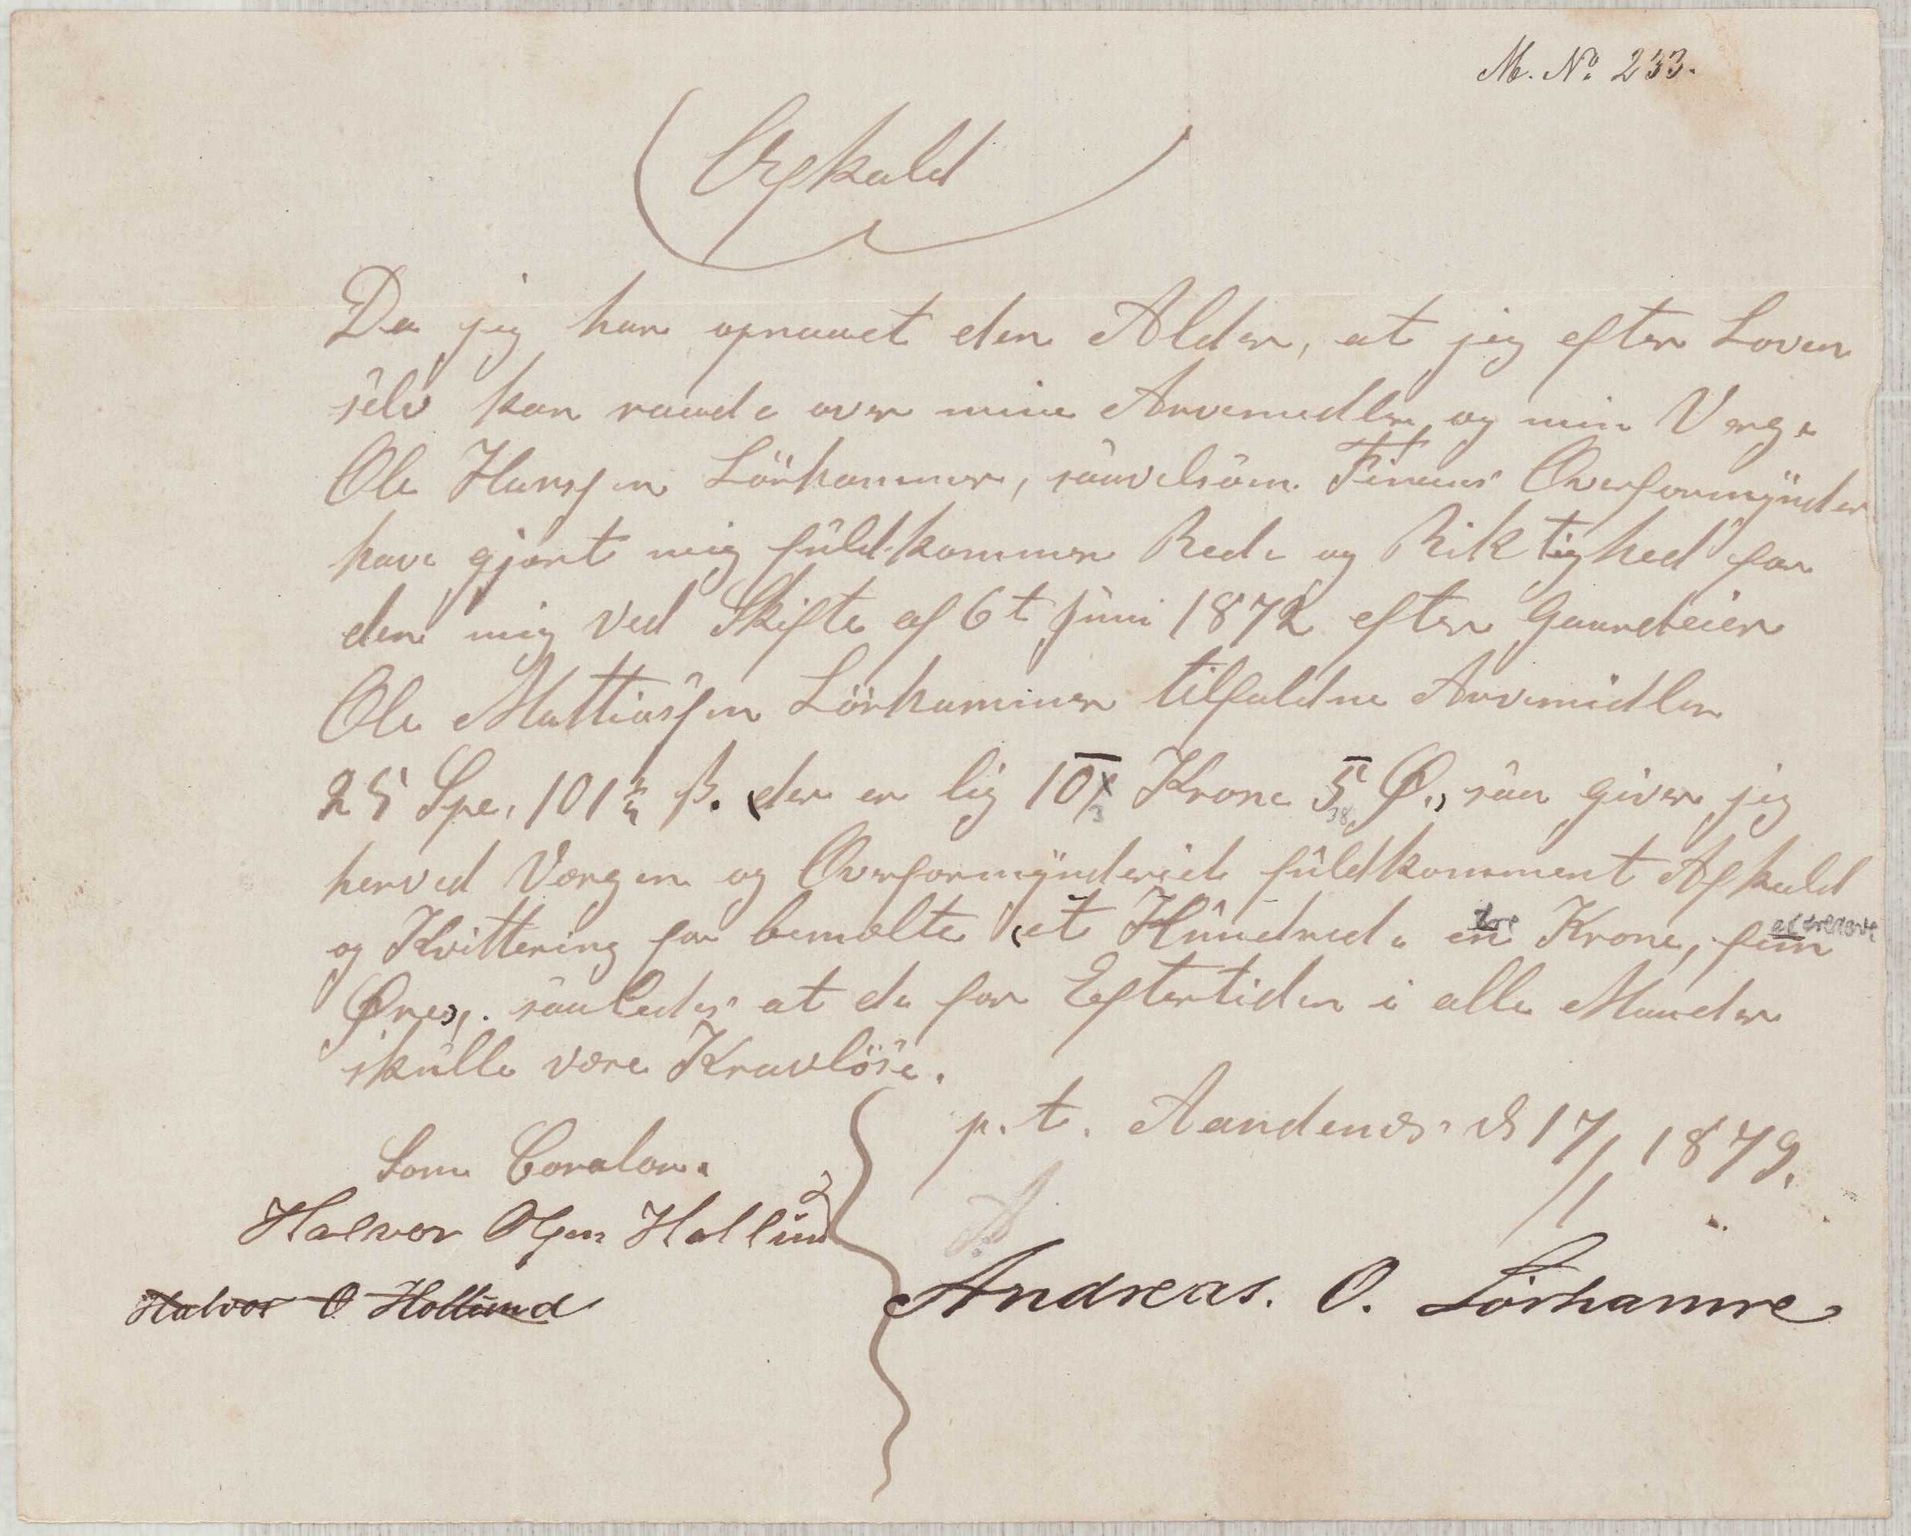 M. No 233.
Afkald
Da jeg har opnaaet den Alder, at jeg efter Loven
selv kan raade over mine Arvemidler, og min Verge
Ole Hansen Lörhammer, saavelsom Finnaas Overformynder
have gjort mig fuldkommen Rede og Riktighed for
den mig ved Skifte af 6t Juni 1872 efter Gaardeier
Ole Mattiassen Lörhammer tilfaldne Arvemidler
25 Spe. 101¾ ß. der er lig 101 Krone 5 Ø., saa giver jeg
3 38
herved Vergen og Overformynderiet fuldkomment Afkald
og Kvittering for bemelte et Hundrede en Krone, fem
tre
Øre, saaledes at de for Eftertiden i alle Maader
skulle være Kravlöse.
p.t. Aandenes d 17/1 1879.
Som Corator.
Halvor Olsen Hollund
Andreas. O. Lörhamre
Halvor O Hollund